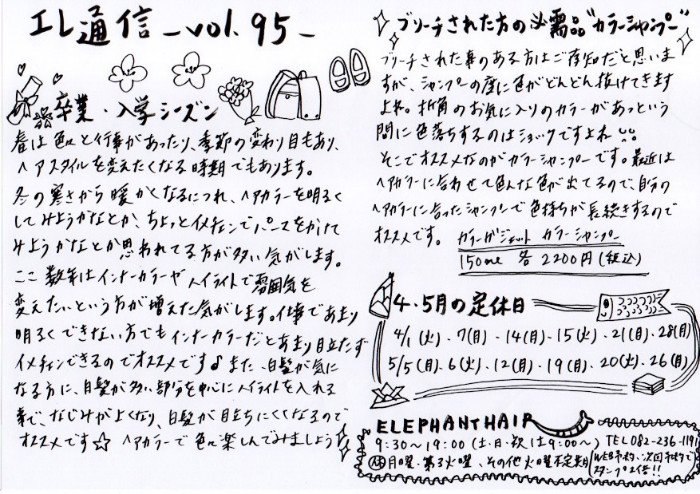 エレ通信 -vol.95-
卒業・入学シーズン
春は色々と行事があったり、季節の変わり目もあり、
ヘアスタイルを変えたくなる時期でもあります。
冬の寒さから暖かくなるにつれ、ヘアカラーを明るく
してみようかなとか、ちょっとイメチェンでパーマをかけて
みようかなとか思われてる方が多い気がします。
ここ数年はインナーカラーやハイライトで雰囲気を
変えたいという方が増えた気がします。仕事であまり
明るくできない方でもインナーカラーだとあまり目立たず
イメチェンできるのでオススメです♪また、白髪が気に
なる方に、白髪が多い部分を中心にハイライトを入れる
事で、なじみがよくなり、白髪が目立ちにくくなるので
オススメです☆ ヘアカラーで色々楽しんでみましょう
ブリーチされた方の必需品"カラーシャンプー"
ブリーチされた事のある方はご存知だと思いま
すが、シャンプーの度に色がどんどん抜けてきます
よね。折角のお気に入りのカラーがあっという
間に色落ちするのはショックですよね
そこでオススメなのがカラーシャンプーです。最近は
ヘアカラーに合わせて色んな色が出てるので、自分の
ヘアカラーに合ったシャンプーで色持ちが長続きするので
オススメです。 カラーガジェット カラーシャンプー
150ml 各2200円(税込)
4.5月の定休日
4/1(火)・7(月)・14(月)・15(火)・21(月)・28(月)
5/5(月)・6(火)・12(月)・19(月)・20(火)・26(月)
ELEPHANT HAIR
9:30~19:00 (土・日・祝は9:00~) TEL 082-236-1191
㊡月曜・第3火曜、その他火曜不定期 WEB予約、次回予約で
スタンプ2倍!!